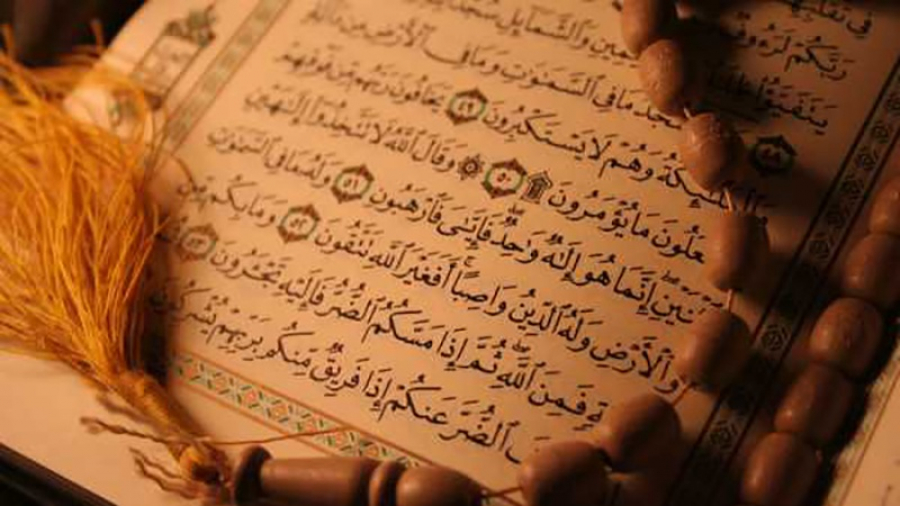 فِي تَقَلُّبِهِمْ
رَبَّكُمْ لَرَءُوفٌ
يَتَفَيَّؤُا۟ وَٱلشَّمَآئِلِ سُجَّدًا
٤٨ مَا فِى ٱلسَّمَٰوَٰتِ وَمَا فِى ٱلْأَرْضِ مِن
وَهُمْ لَا يَسْتَكْبِرُونَ ٤٩ يَخَافُونَ رَبَّهُم مِّن فَوْقِهِمْ
عَلُونَ مَا يُؤْمَرُونَ ۩ ٥٠ ۞ وَقَالَ ٱللَّهُ لَا تَتَّخِذُوٓا۟ إِلَٰهَيْنِ
نَيْنِ إِنَّمَا هُوَ إِلَٰهٌ وَٰحِدٌ فَإِيَّٰىَ فَٱرْهَبُونِ ٥١ وَلَهُۥ مَا فِى ٱلسَّمَٰوَٰتِ
وَٱلْأَرْضِ وَلَهُ ٱلدِّينُ وَاصِبًا أَفَغَيْرَ ٱللَّهِ تَتَّقُونَ ٥٢ وَمَا بِكُم مِّن
ةٍ فَمِنَ ٱللَّهِ ثُمَّ إِذَا مَسَّكُمُ ٱلضُّرُّ فَإِلَيْهِ تَجْـَٔرُونَ ٥٣
فَ ٱلضُّرَّ عَنكُمْ إِذَا فَرِيقٌ مِّنكُم بِرَبِّهِمْ يُشْرِكُونَ